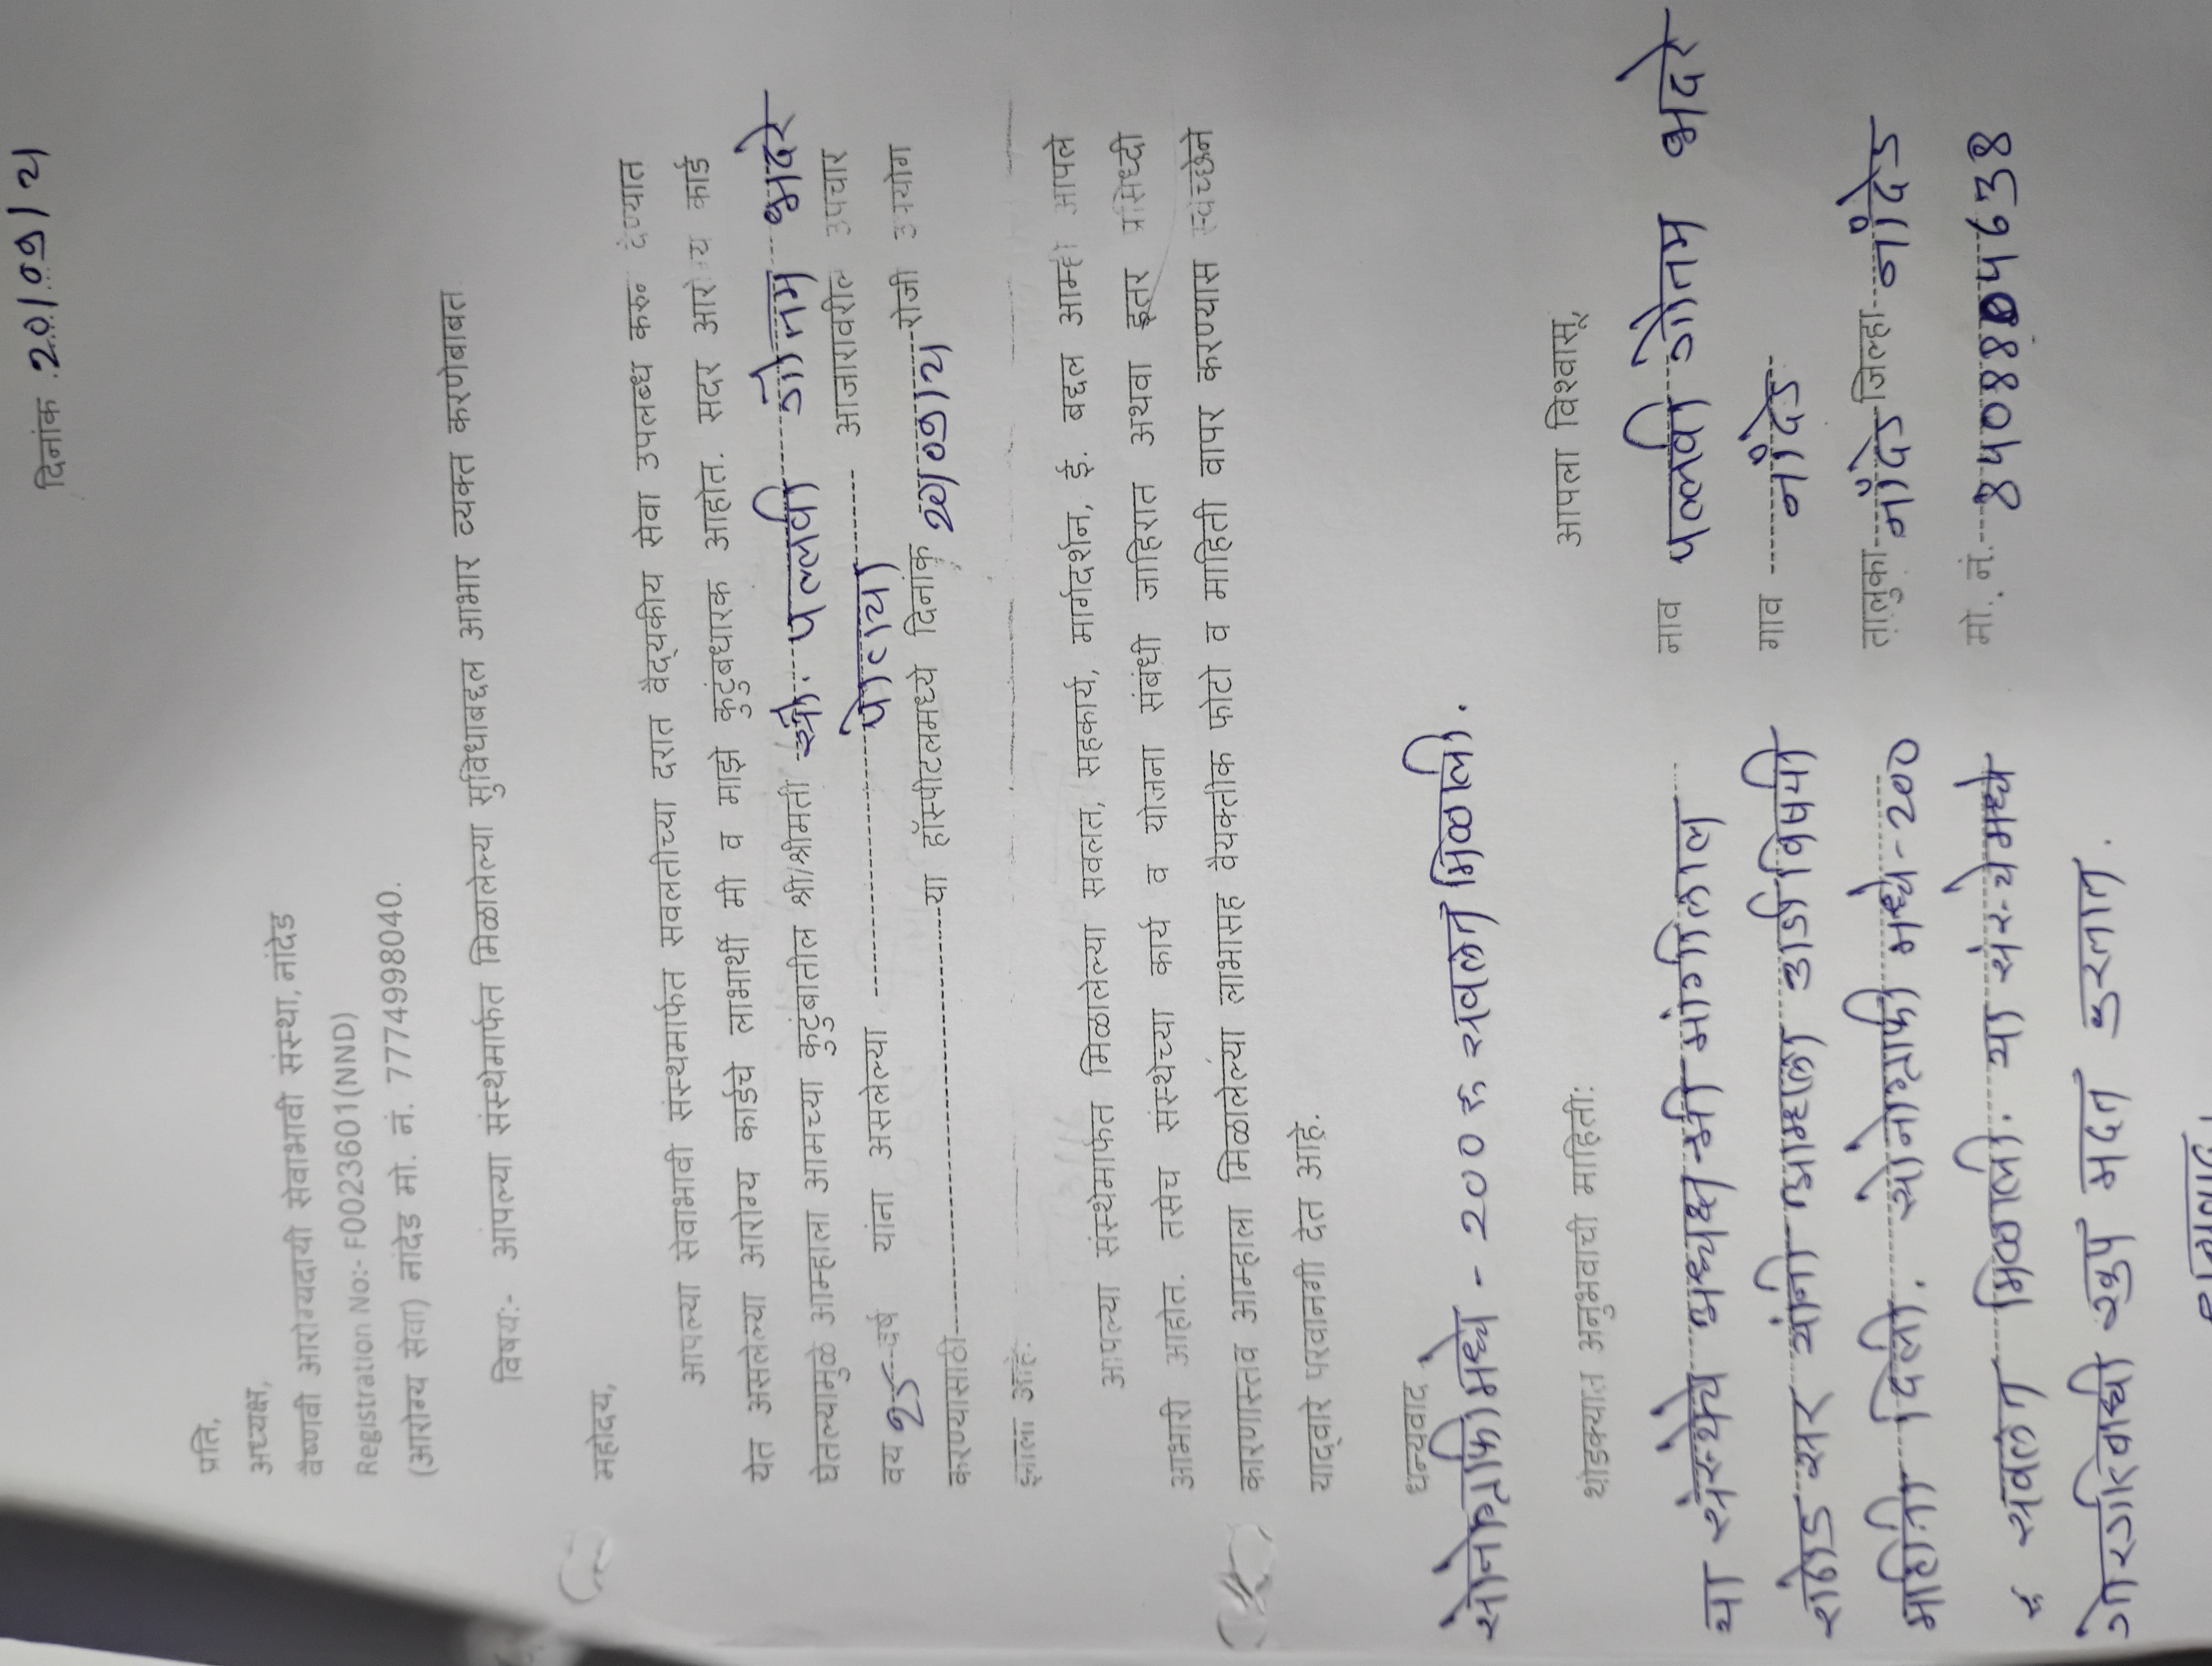 दिनांक 20/09/24
प्रति,
अध्यक्ष,
वैष्णवी आरोग्यदायी सेवाभावी संस्था, नांदेड
Registration No:- F0023601(NND)
(आरोग्य सेवा) नांदेड मो. नं. 7774998040.
विषय:- आपल्या संस्थेमार्फत मिळालेल्या सुविधाबद्दल आभार व्यक्त करणेबाबत
महोदय,
आपल्या सेवाभावी संस्थेमार्फत सवलतीच्या दरात वैद्यकीय सेवा उपलब्ध करून देण्यात
येत असलेल्या आरोग्य कार्डचे लाभार्थी मी व माझे कुटुंबधारक आहोत. सदर आरोग्य कार्ड
घेतल्यामुळे आम्हाला आमच्या कुटुंबातील श्री/श्रीमती सौ. पल्लवी गौतम भदरे
वय 25 वर्ष यांना असलेल्या पोटाचा आजारावरील उपचार
करण्यासाठी या हॉस्पीटलमध्ये दिनांक रोजी उपयोग
झाला आहे.
आपल्या संस्थेमार्फत मिळालेल्या सवलत, सहकार्य, मार्गदर्शन, ई. बद्दल आम्ही आपले
आभारी आहोत. तसेच संस्थेच्या कार्य व योजना संबंधी जाहिरात अथवा इतर प्रसिध्दी
कारणास्तव आम्हाला मिळालेल्या लाभासह वैयक्तीक फोटो व माहिती वापर करण्यास स्वेच्छेने
याद्वारे परवानगी देत आहे.
धन्यवाद
सोनोग्राफी मध्ये - 200 रु सवलत मिळाली.
थोडक्यात अनुभवाची माहिती:
आपला विश्वासू,
या संस्थेचे अध्यक्ष श्री मांगीलाल
राठोड सर यांनी आम्हाला कार्डाविषयी
माहिती दिली. सोनोग्राफी मध्ये - 200
रु सवलत मिळाली. या संस्थेमध्ये
गोरगरिबांची खुप मदत करतात.
नाव पल्लवी गौतम भदरे
गाव नांदेड
तालुका नांदेड जिल्हा नांदेड
मो. नं.
धन्यवाद.